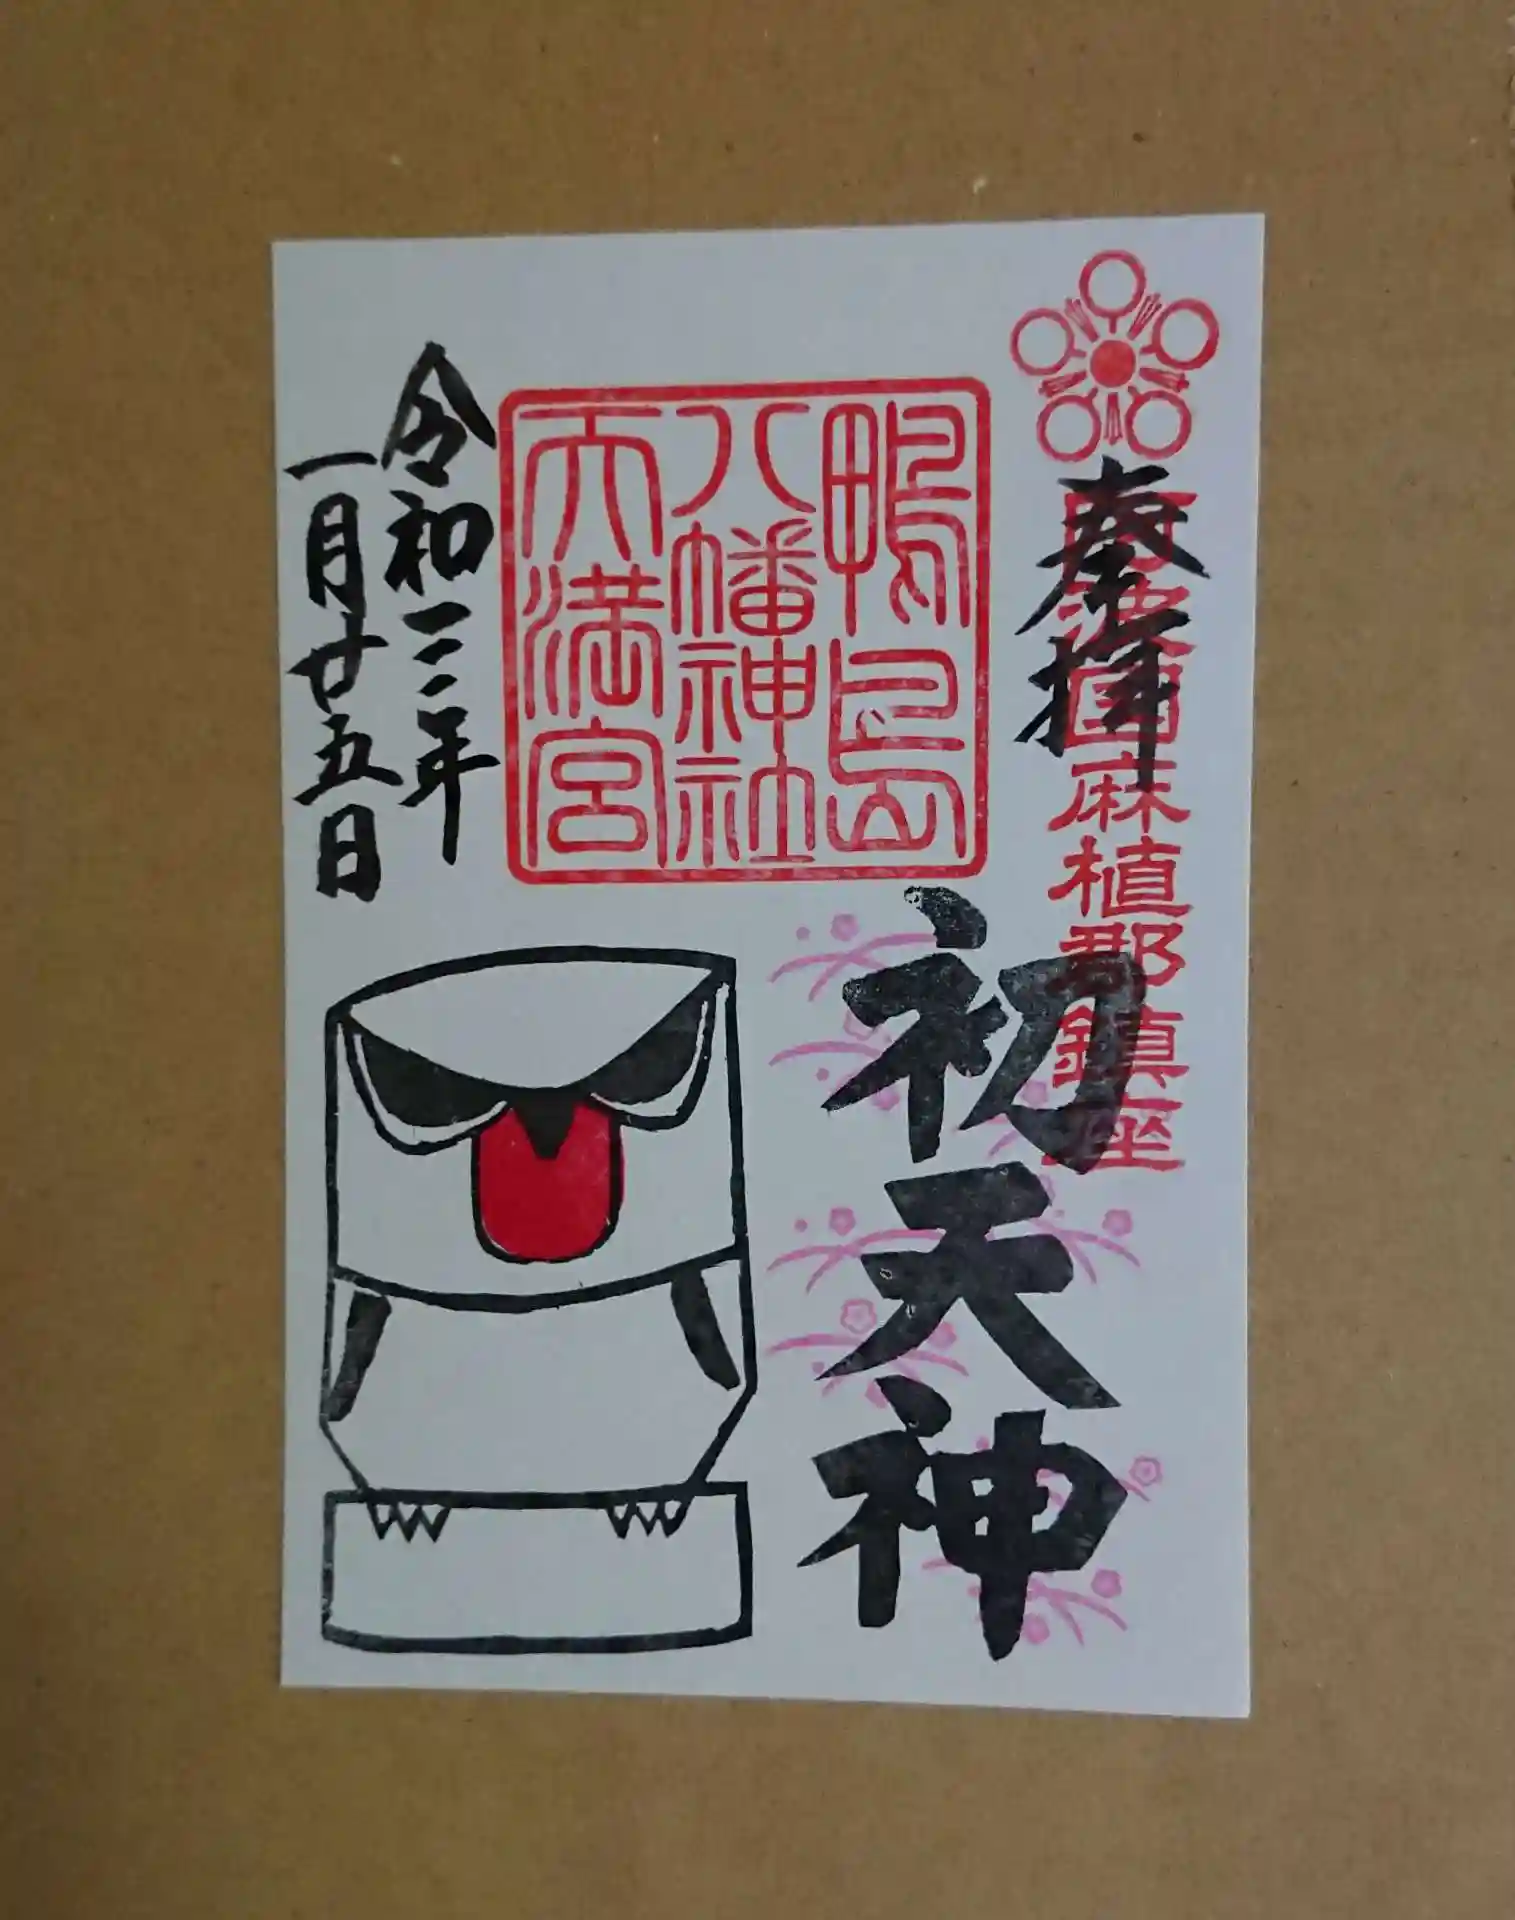 奉拝
阿波國麻植郡鎮座
初天神
鴨島
八幡神社
天満宮
令和三年
一月廿五日